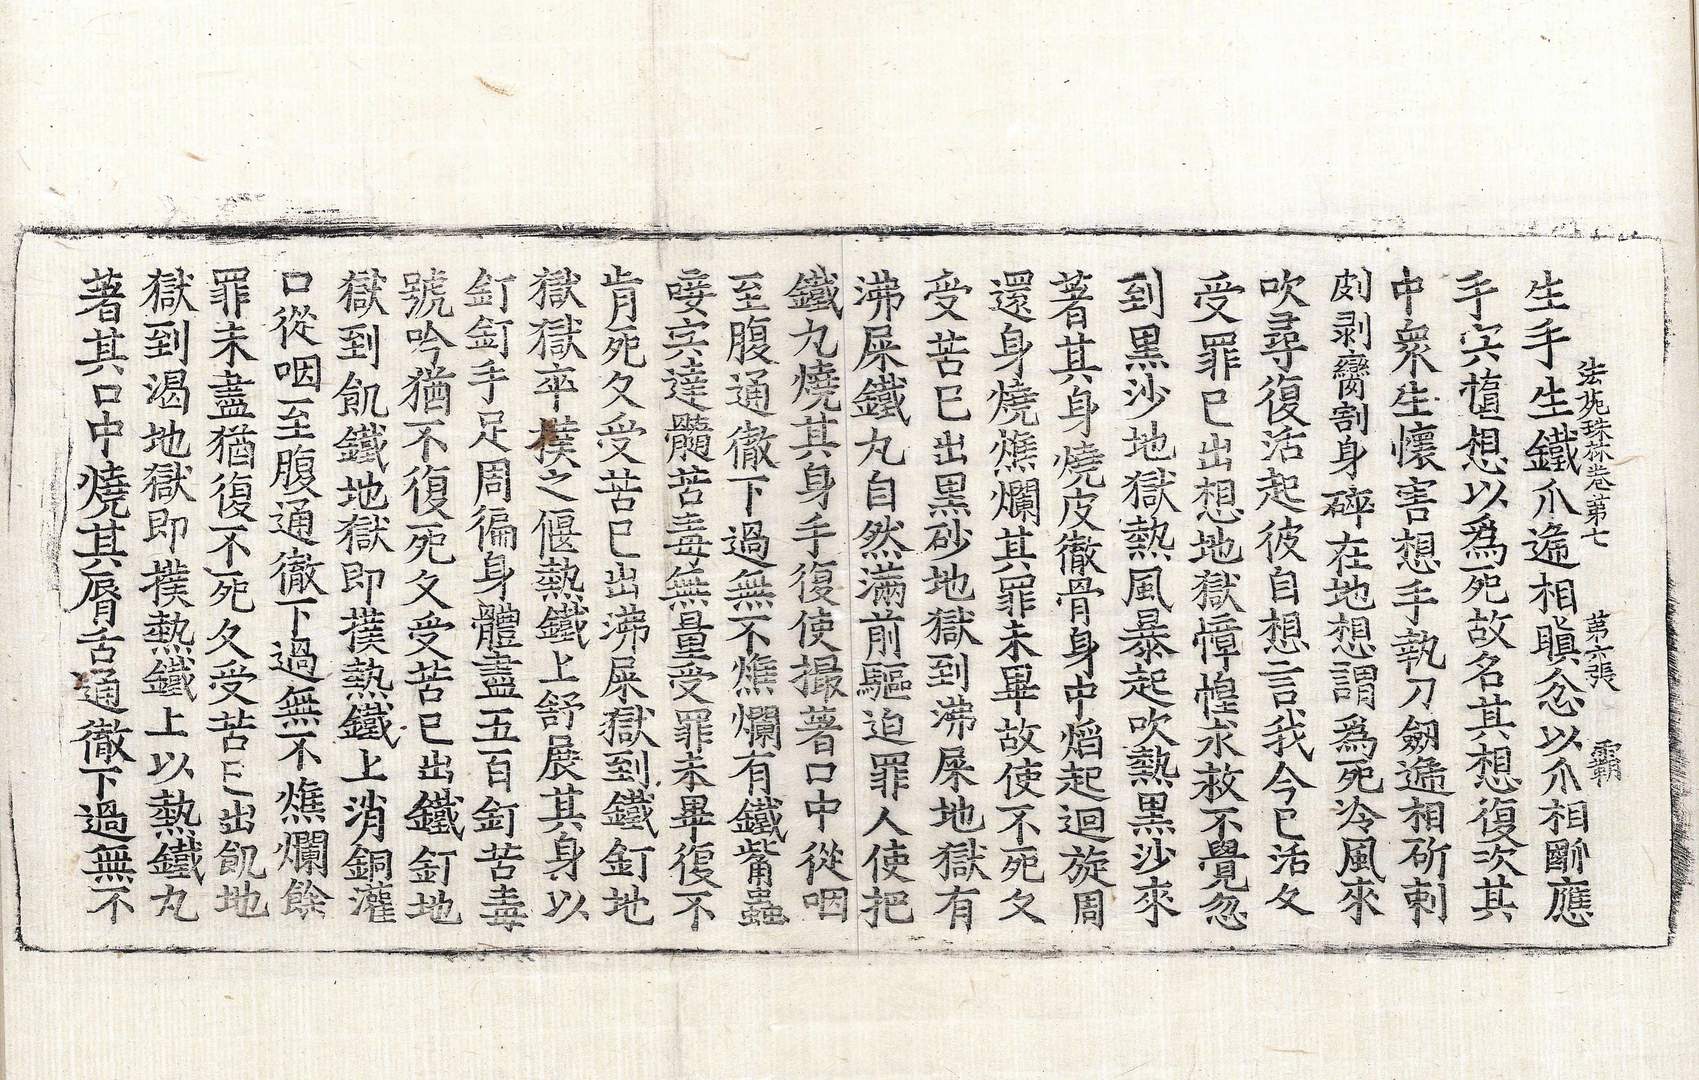 法苑珠林卷第七　第六張　霸
生手生鐵爪遞相瞋忿以爪相𣃁應
手宍墮想以爲死故名其想復次其
中衆生懷害想手執刀劔遞相斫刺
剥臠割身碎在地想謂爲死冷風來
吹尋復活起彼自想言我今已活久
受罪已出想地獄慞惶求救不覺忽
到黒沙地獄熱風暴起吹熱黒沙來
著其身燒皮徹骨身中熖起迴旋周
還身燒燋爛其罪未畢故使不死久
受苦已出黒砂地獄到沸屎地獄有
沸屎鐵丸自然滿前驅迫罪人使把
鐵丸燒其身手復使撮著口中從咽
至腹通徹下過無不燋爛有鐵觜蟲
唼宍達髓苦毒無量受罪未畢復不
肯死久受苦已出沸屎獄到鐵釘地
獄獄卒撲之偃熱鐵上舒展其身以
釘釘手足周徧身體盡五百釘苦毒
號吟猶不復死久受苦已出鐵釘地
獄到飢鐵地獄即撲熱鐵上消銅灌
口從咽至腹通徹下過無不燋爛餘
罪未盡猶復不死久受苦已出飢地
獄到渴地獄即撲熱鐵上以熱鐵丸
著其口中燒其脣舌通徹下過無不